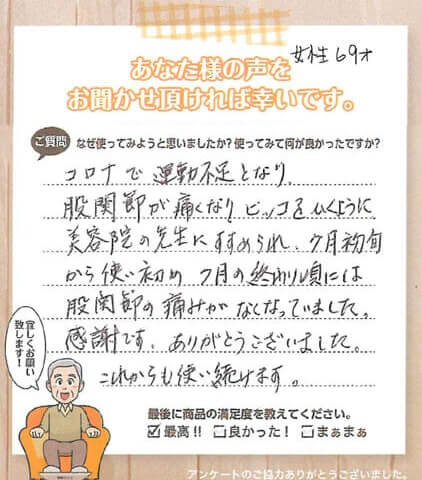 女性 69才
あなた様の声を
お聞かせ頂ければ幸いです。
ご質問 なぜ使ってみようと思いましたか？使ってみて何が良かったですか？
コロナで運動不足となり、
股関節が痛くなり ビッコを引くように
美容院の先生にすすめられ、7月初旬
から使い初め 7月の終わり頃には
股関節の痛みが なくなっていました。
感謝です。ありがとうございました。
これからも使い続けます。
宜しくお願い
致します！
最後に商品の満足度を教えてください。
☑最高！！ □良かった！ □まぁまぁ
アンケートのご協力ありがとうございました。